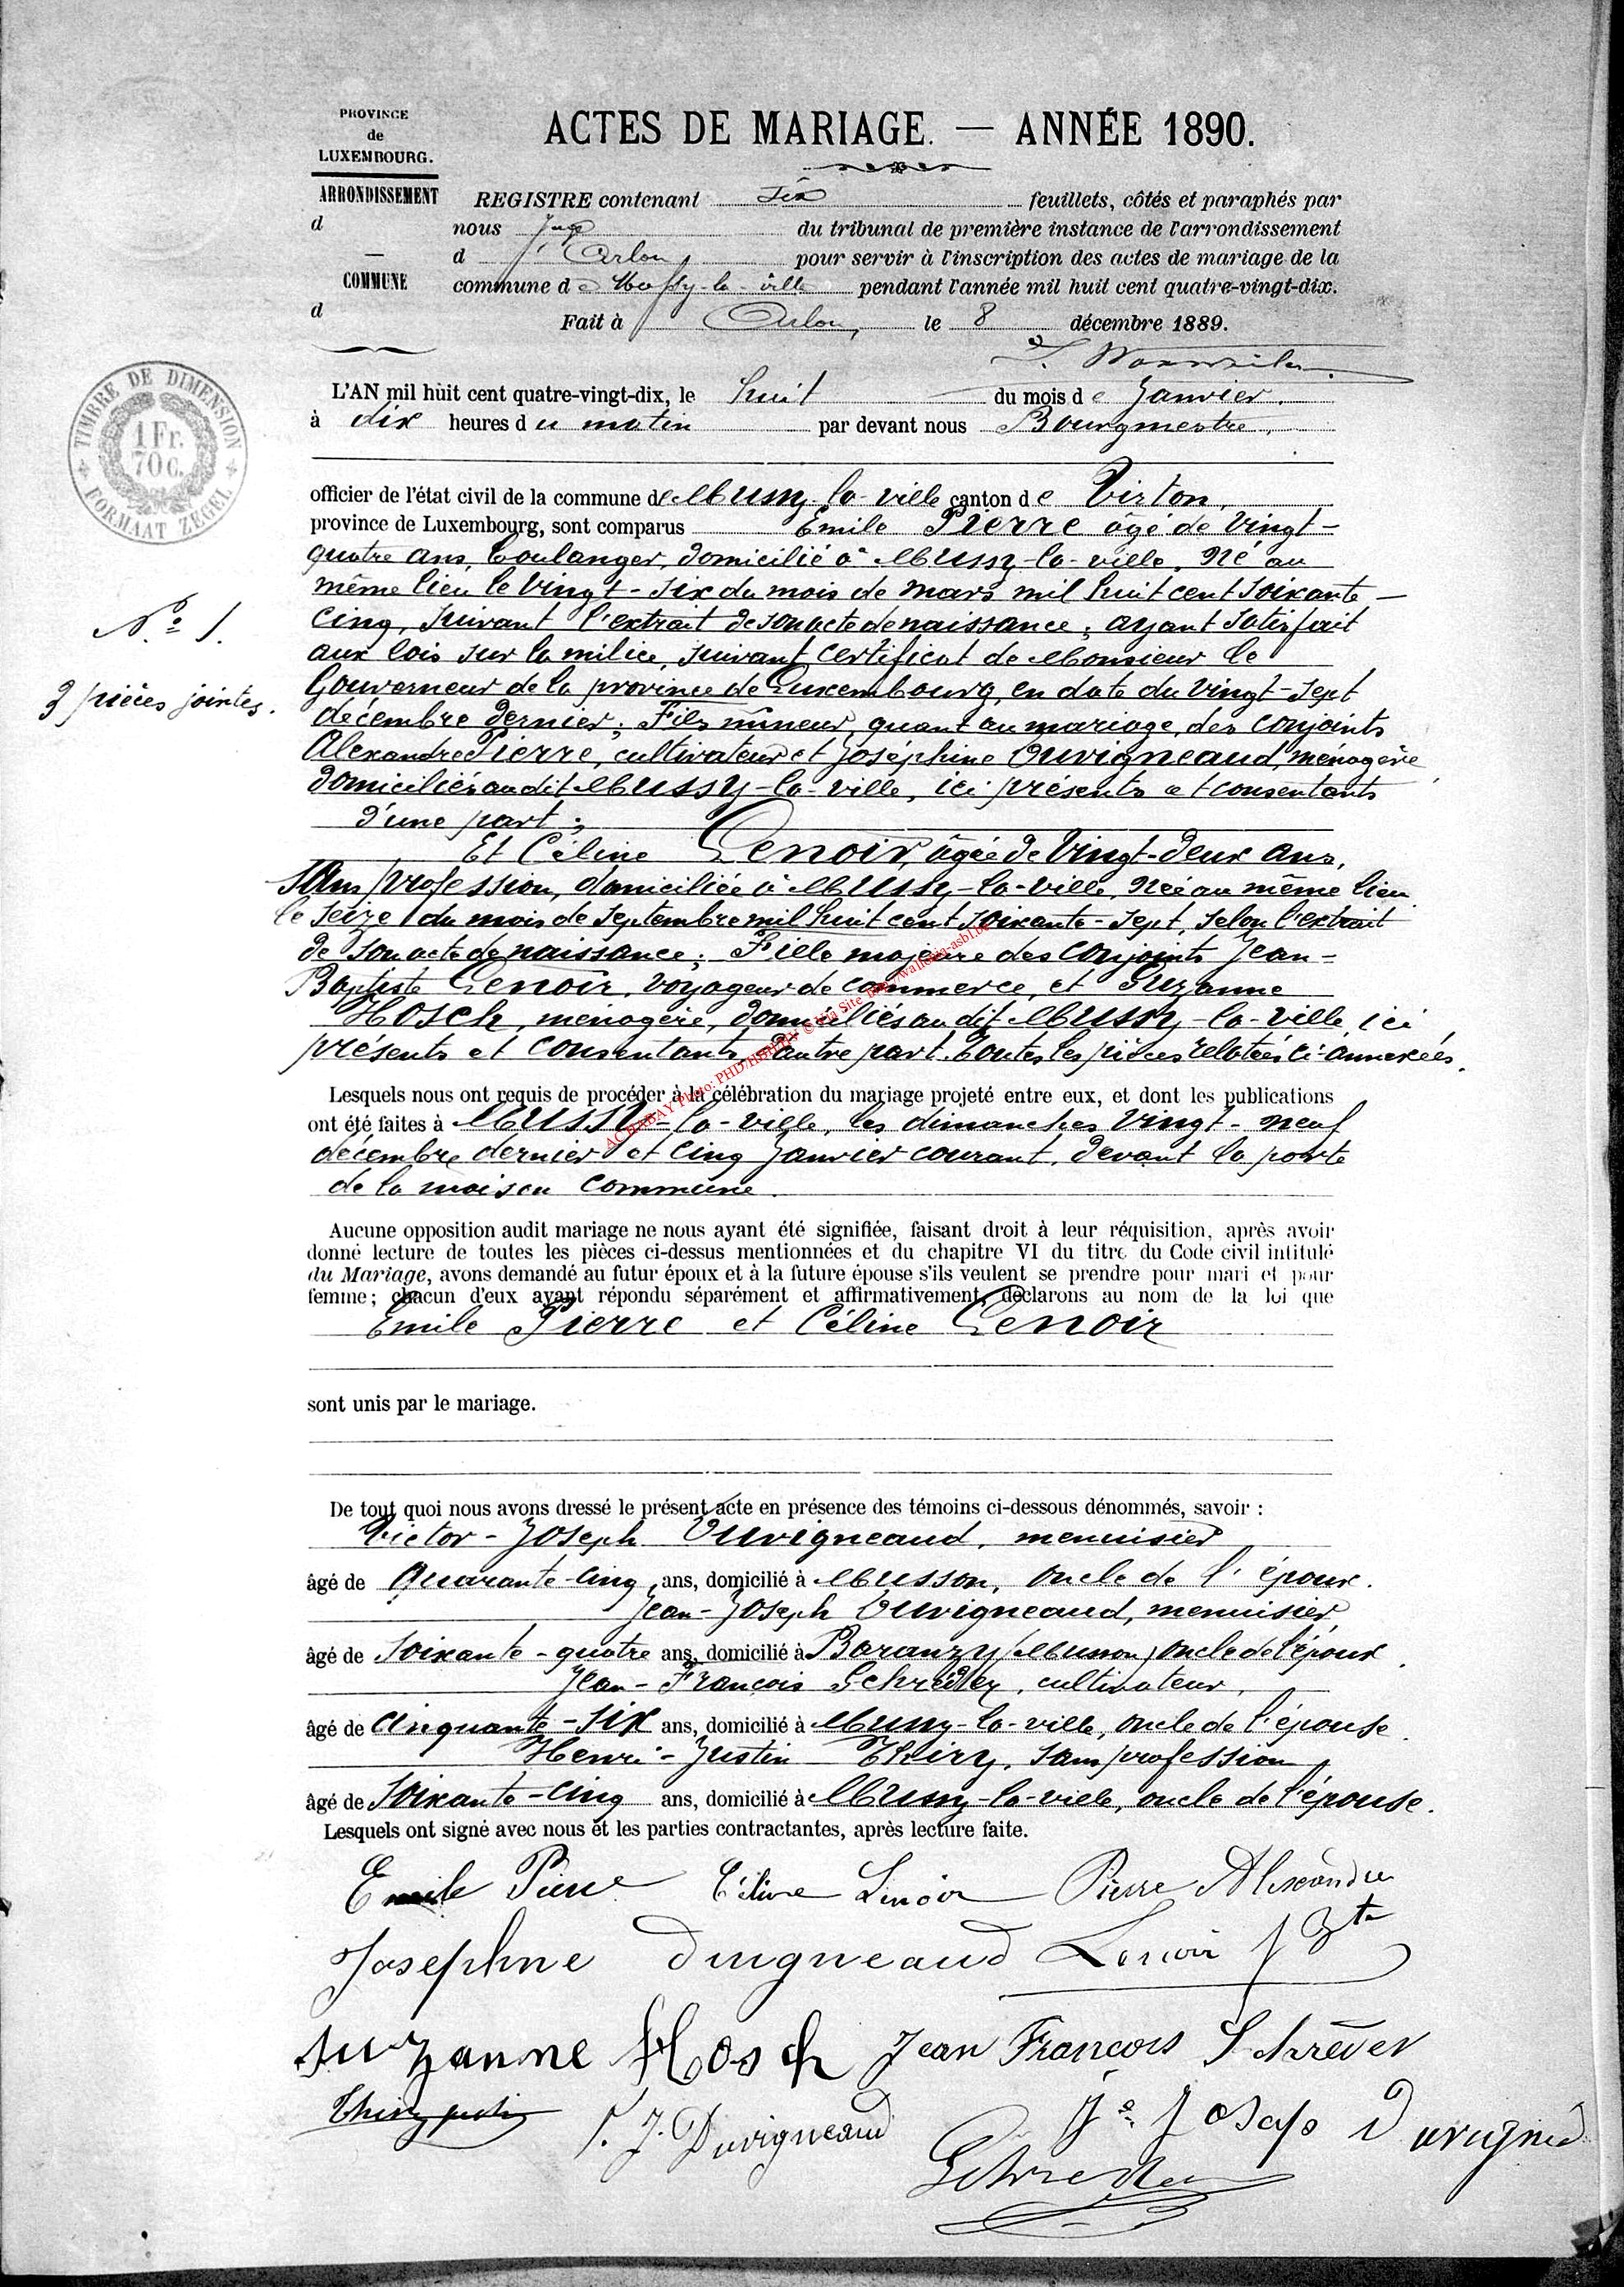 PROVINCE
de
LUXEMBOURG.
ARRONDISSEMENT
d
COMMUNE
d
ACTES DE MARIAGE. — ANNÉE 1890.
REGISTRE contenant six feuillets, côtés et paraphés par
nous Juge du tribunal de première instance de l'arrondissement
d'Arlon pour servir à l'inscription des actes de mariage de la
commune de Mussy-la-ville pendant l'année mil huit cent quatre-vingt-dix.
Fait à Arlon, le 8 décembre 1889.
TIMBRE DE DIMENSION
1 Fr.
70 C.
FORMAAT ZEGEL
L'AN mil huit cent quatre-vingt-dix, le huit du mois de Janvier.
à dix heures du matin par devant nous Bourgmestre,
officier de l'état civil de la commune de Mussy-la-ville canton de Virton,
province de Luxembourg, sont comparus Emile Pierre âgé de vingt-
quatre ans, boulanger, domicilié à Mussy-la-ville, né au
même lieu le vingt-six du mois de mars mil huit cent soixante-
cinq, suivant l'extrait de son acte de naissance; ayant satisfait
aux lois sur la milice, suivant certificat de Monsieur le
Gouverneur de la province de Luxembourg, en date du vingt-sept
décembre dernier; Fils mineur, quant au mariage, des conjoints
Alexandre Pierre, cultivateur et Joséphine Duvigneaud, ménagère
domiciliés audit Mussy-la-ville, ici présents et consentants
d'une part;
N.º 1.
3 pièces jointes.
Et Céline Lenoir, âgée de vingt-deux ans,
sans profession, domiciliée à Mussy-la-ville, née au même lieu
le seize du mois de septembre mil huit cent soixante-sept, selon l'extrait
de son acte de naissance; Fille majeure des conjoints Jean-
Baptiste Lenoir, voyageur de commerce, et Suzanne
Hosch, ménagère, domiciliés audit Mussy-la-ville, ici
présents et consentants d'autre part. Toutes les pièces relatées ci-annexées.
ACHABAY Photo: PHD/HBH/HV © Via Site http://wallonia-asbl.be
Lesquels nous ont requis de procéder à la célébration du mariage projeté entre eux, et dont les publications
ont été faites à Mussy-la-ville, les dimanches vingt-neuf
décembre dernier et cinq Janvier courant, devant la porte
de la maison commune.
Aucune opposition audit mariage ne nous ayant été signifiée, faisant droit à leur réquisition, après avoir
donné lecture de toutes les pièces ci-dessus mentionnées et du chapitre VI du titre du Code civil intitulé
du Mariage, avons demandé au futur époux et à la future épouse s'ils veulent se prendre pour mari et pour
femme; chacun d'eux ayant répondu séparément et affirmativement, declarons au nom de la loi que
Emile Pierre et Céline Lenoir
sont unis par le mariage.
De tout quoi nous avons dressé le présent acte en présence des témoins ci-dessous dénommés, savoir :
Victor-Joseph Duvigneaud, menuisier
âgé de Quarante-cinq ans, domicilié à Musson, oncle de l'époux.
Jean-Joseph Duvigneaud, menuisier
âgé de soixante-quatre ans, domicilié à Baranzy (Musson) oncle de l'époux.
Jean-François Schréder, cultivateur,
âgé de cinquante-six ans, domicilié à Mussy-la-ville, oncle de l'épouse.
Henri-Justin Thiry, sans profession
âgé de soixante-cinq ans, domicilié à Mussy-la-ville, oncle de l'épouse.
Lesquels ont signé avec nous et les parties contractantes, après lecture faite.
Emile Pierre Céline Lenoir Pierre Alexandre
Josephne Duigneaud Lenoir J Bte
Suzanne Hosch Jean François Schréder
Thiry justin V. J. Duvigneaud Jn Josep Duvigned